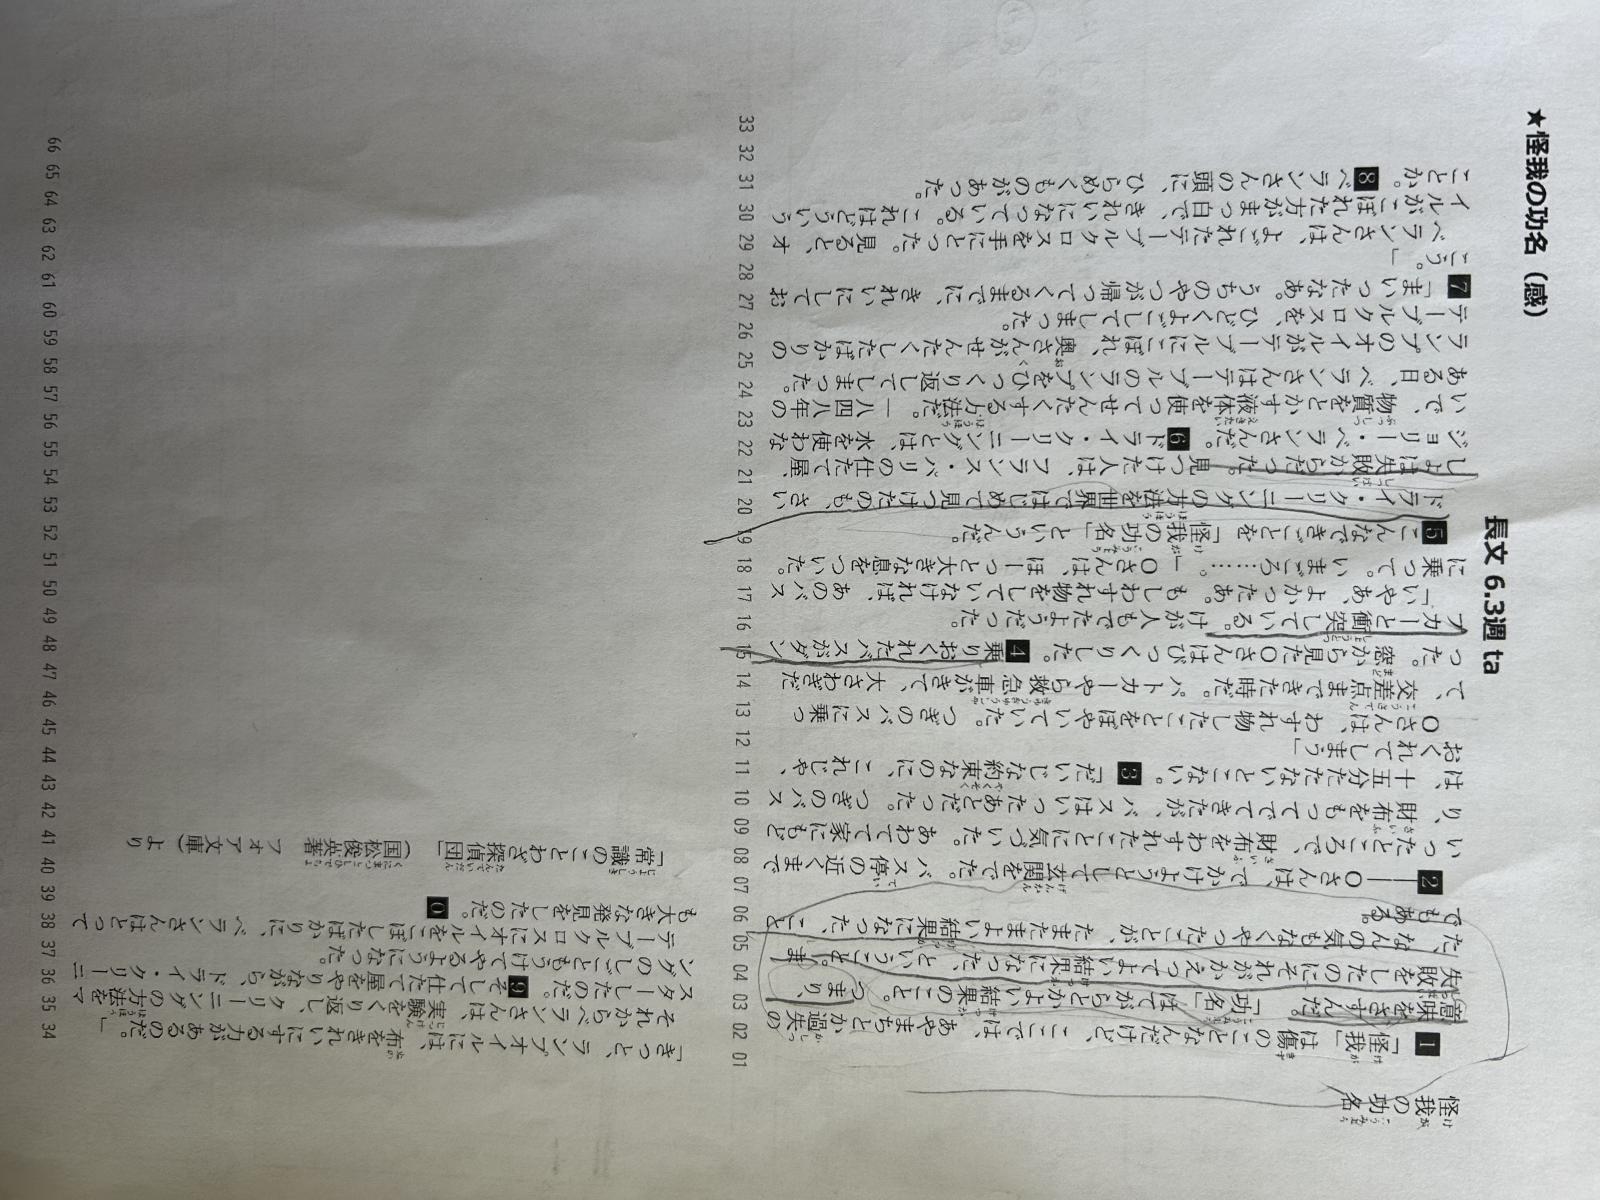 ★怪我の功名（感）
長文 6.3週 ta
怪我の功名
1「怪我」は傷のことなんだけど、ここでは、あやまちとか過失の
意味をさすんだ。「功名」はてがらとかよい結果のこと。つまり、
失敗をしたのにそれがかえってよい結果になった、ということ。ま
た、なんの気もなくやったことが、たまたまよい結果になったこと
でもある。
2――Oさんは、でかけようとして玄関をでた。バス停の近くまで
いったところで、財布をわすれたことに気づいた。あわてて家にもど
り、財布をもってでてきたが、バスはいったあとだった。つぎのバス
は、十五分たたないとこない。3「だいじな約束なのに、これじゃ、
おくれてしまう」
Oさんは、わすれ物したことをぼやいていた。つぎのバスに乗っ
て、交差点まできた時だ。パトカーやら救急車がきて、大さわぎだ
った。窓から見たOさんはびっくりした。4乗りおくれたバスがダン
プカーと衝突している。けが人もでたようだった。
「いやあ、よかったあ。もしわすれ物をしていなければ、あのバス
に乗って。いまごろ……。」Oさんは、ほーっと大きな息をついた。
5こんなできごとを「怪我の功名」というんだ。
ドライ・クリーニングの方法を世界ではじめて見つけたのも、さい
しょは失敗からだった。見つけた人は、フランス・パリの仕たて屋、
ジョリー・ベランさんだ。6ドライ・クリーニングとは、水を使わな
いで、物質をとかす液体を使ってせんたくする方法だ。一八四八年の
ある日、ベランさんはテーブルのランプをひっくり返してしまった。
ランプのオイルがテーブルにこぼれ、奥さんがせんたくしたばかりの
テーブルクロスを、ひどくよごしてしまった。
7「まいったなあ。うちのやつが帰ってくるまでに、きれいにしてお
こう。」
ベランさんは、よごれたテーブルクロスを手にとった。見ると、オ
イルがこぼれた方がまっ白で、きれいになっている。これはどういう
ことか。8ベランさんの頭に、ひらめくものがあった。
01 02 03 04 05 06 07 08 09 10 11 12 13 14 15 16 17 18 19 20 21 22 23 24 25 26 27 28 29 30 31 32 33
「きっと、ランプオイルには、布をきれいにする力があるのだ。」
それからベランさんは、実験をくり返し、クリーニングの方法をマ
スターしたのだ。9そして仕たて屋をやりながら、ドライ・クリーニ
ングのしごともひきうけてやるようになった。
テーブルクロスにオイルをこぼしたばかりに、ベランさんはとって
も大きな発見をしたのだ。0
「常識のことわざ探偵団」（国松俊英著 フォア文庫）より
34 35 36 37 38 39 40 41 42 43 44 45 46 47 48 49 50 51 52 53 54 55 56 57 58 59 60 61 62 63 64 65 66